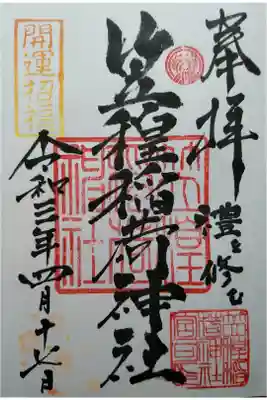 奉拝 禮を修む
笠䅣稲荷神社
開運招福
令和三年四月十七日